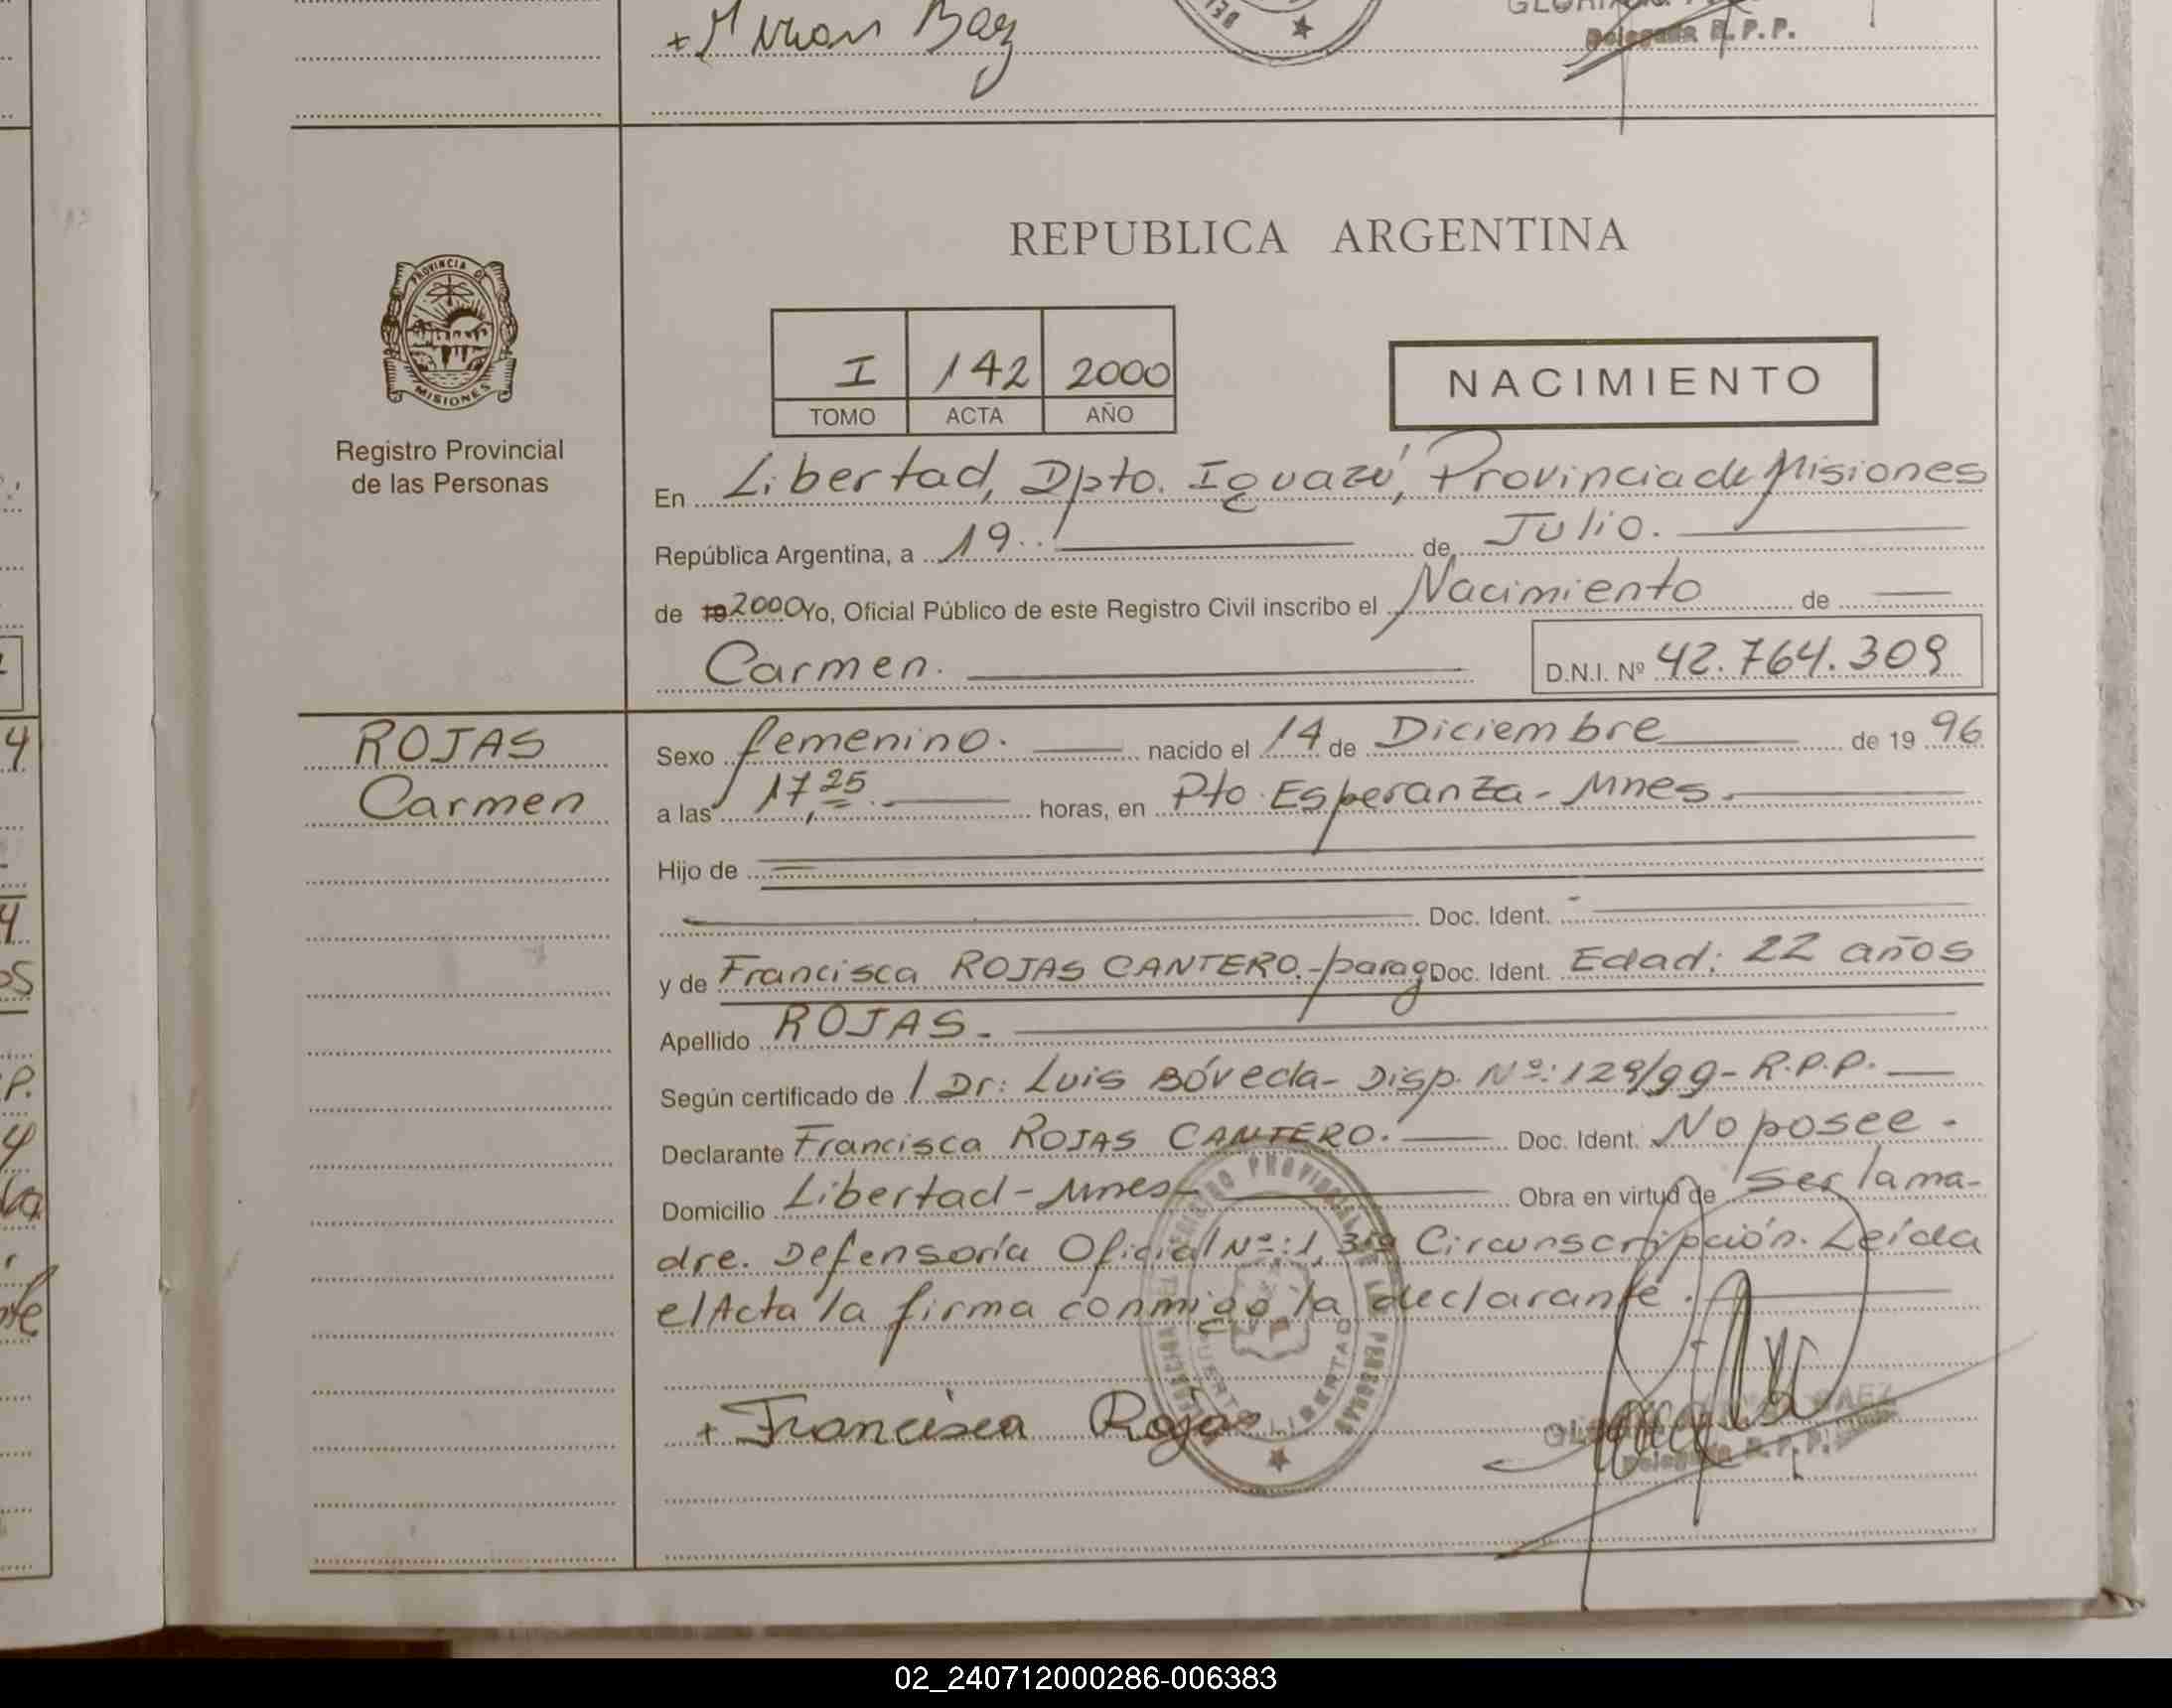 + Mirian Baez
Delegada R.P.P.
PROVINCIA DE
MISIONES
Registro Provincial
de las Personas
REPUBLICA ARGENTINA
I 142 2000
TOMO ACTA AÑO
NACIMIENTO
En Libertad, Dpto. Iguazú, Provincia de Misiones
República Argentina, a 19.. de Julio.
de 19 2000 Yo, Oficial Público de este Registro Civil inscribo el Nacimiento de
Carmen. D.N.I. Nº 42.764.309
ROJAS
Carmen
Sexo femenino. nacido el 14 de Diciembre de 19 96
a las 17,25 horas, en Pto. Esperanza - Mnes.
Hijo de
Doc. Ident.
y de Francisca ROJAS CANTERO.- parag Doc. Ident. Edad: 22 años
Apellido ROJAS.
Según certificado de / Dr: Luis Bóveda - Disp. Nº: 129/99 - R.P.P.
Declarante Francisca ROJAS CANTERO. Doc. Ident. No posee.
Domicilio Libertad - Mnes - Obra en virtud de Ser la ma-
dre. Defensoría Oficial Nº: 1, 3ra Circunscripción. Leída
el Acta la firma conmigo la declarante.
+ Francisca Rojas
Delegada R.P.P.
02_240712000286-006383